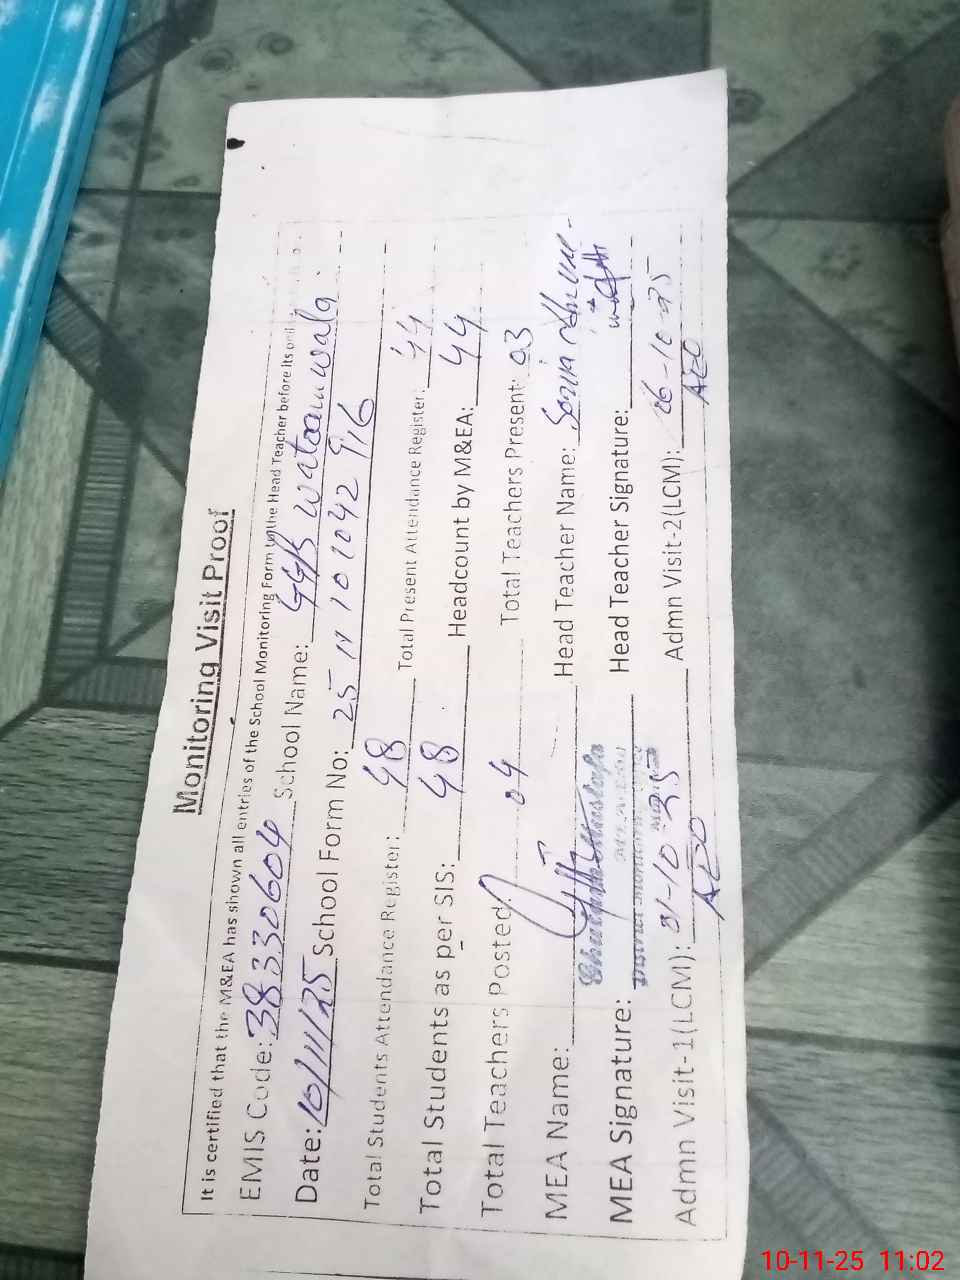 Monitoring Visit Proof
It is certified that the M&EA has shown all entries of the School Monitoring Form to the Head Teacher before its onl
EMIS Code: 38330604 School Name: GGPS Watoanwala
Date: 10/11/25 School Form No: 25 11 10 1042 916
Total Students Attendance Register: 48 Total Present Attendance Register: 44
Total Students as per SIS: 48 Headcount by M&EA: 44
Total Teachers Posted: 04 Total Teachers Present: 03
MEA Name: Ghulam Mustafa Head Teacher Name: Sonia
MEA Signature: District Monitoring Head Teacher Signature:
Admn Visit-1(LCM): 01-10-25 Admn Visit-2(LCM): 06-10-25
AEO AEO
10-11-25 11:02